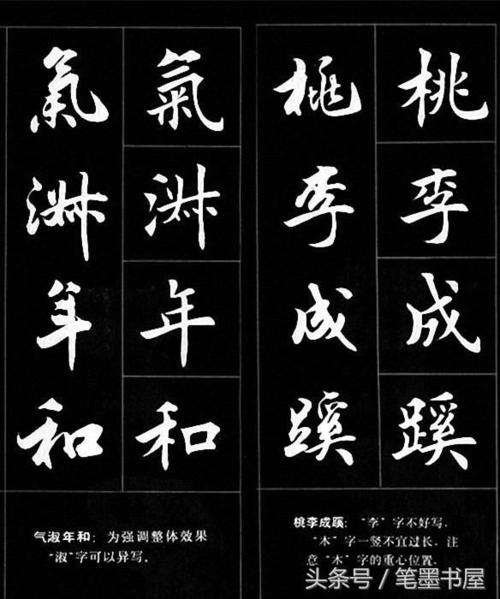 桃李成蹊
桃李成蹊
桃李成蹊：“李”字不好写，
“木”字一竖不宜过长，注
意“木”字的重心位置。
氣淑年和
氣淑年和
气淑年和：为强调整体效果
“淑”字可以异写。
头条号／笔墨书屋